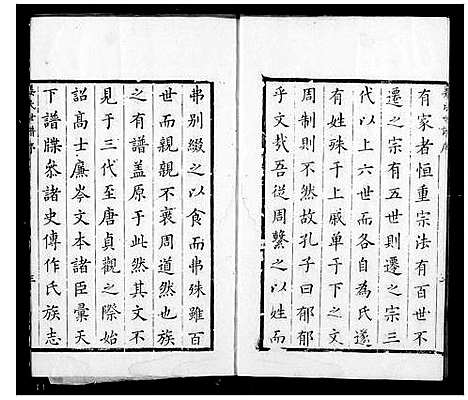 有家者恒重宗法有百世不
遷之宗有五世則遷之宗三
代以上六世而各自為氏遂
有姓殊于上戚单于下之文
周制則不然故孔子曰郁郁
乎文哉吾従周繫之以姓而
弗別綴之以食而弗殊雖百
世而親親不衰周道然也族
之有譜盖原于此然其文不
見于三代至唐貞觀之際始
詔髙士廉岑文本諸臣彙天
下譜牒叅諸史傳作氏族志
氏世譜序
三